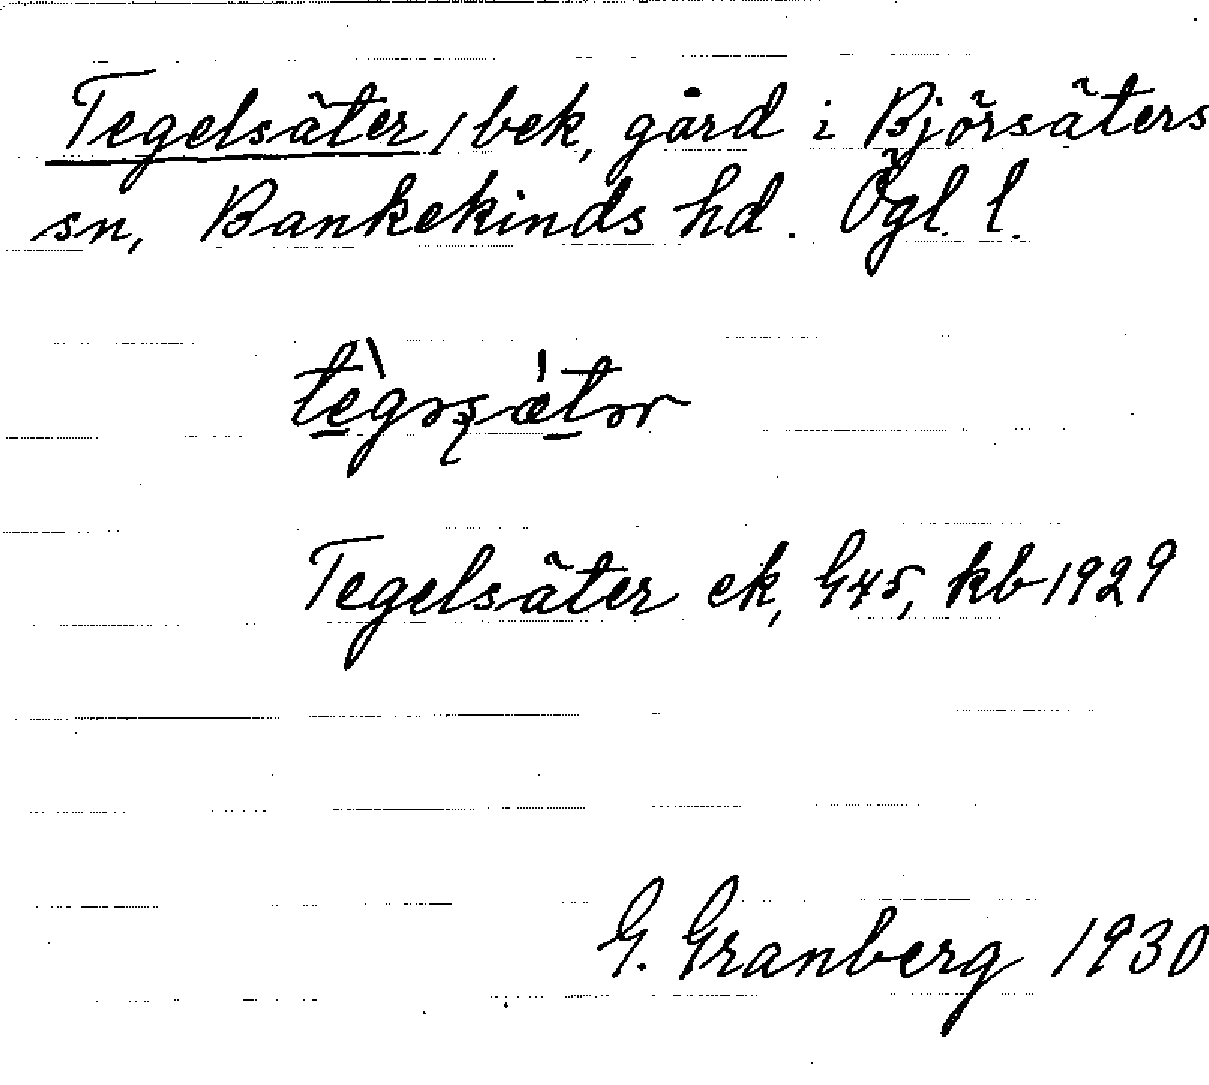 Tegelsäter, bek, gård i Björsäters
sn, Bankekinds hd. Ögl. l.
Tegelsäter ek, G45, kb 1929
G. Granberg 1930